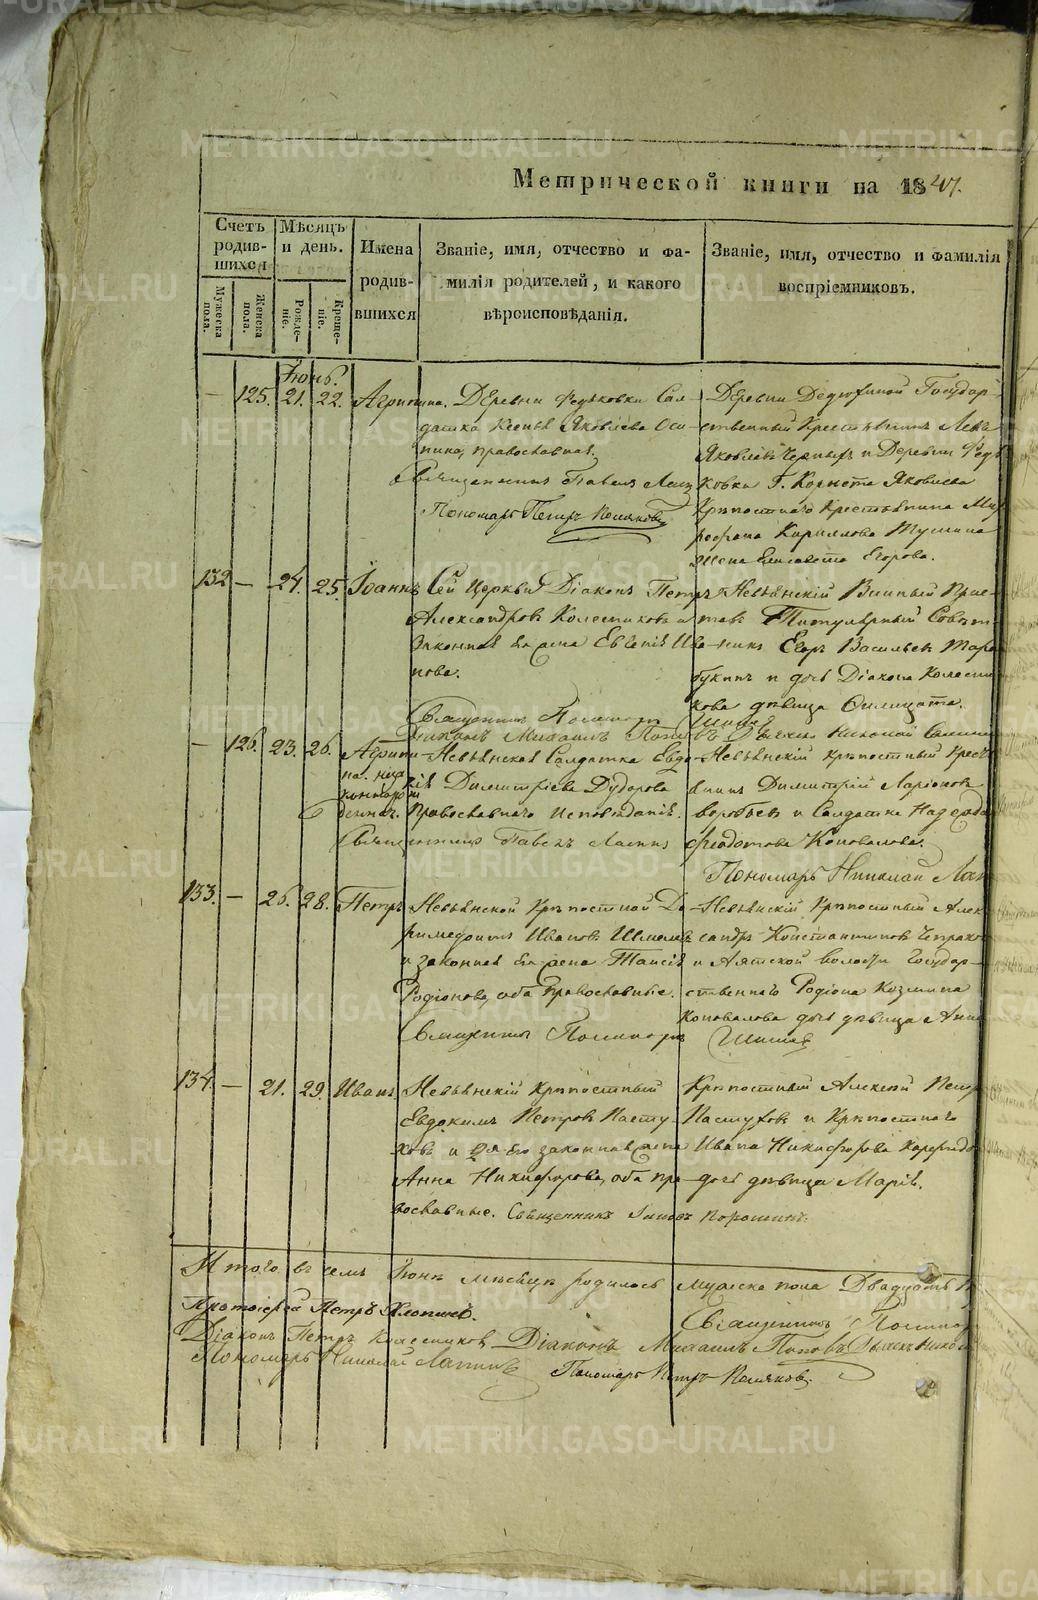 Метрической книги на 1847.
Счетъ родив-шихся
Мѣсяцъ и день.
Имена родив-вшихся
Званіе, имя, отчество и фа-
милія родителей, и какого
вѣроисповѣданія.
Званіе, имя, отчество и фамилія
воспріемниковъ.
Мужеска пола.
Женска пола.
Рожде-ніе.
Креще-ніе.
Іюнь.
— 125. 21. 22. Агрипина. Деревни Федьковки Сал-
датка Ксенія Яковлева Оси-
пина, православная.
Священникъ Павелъ
Пономарь Петръ Поляковъ
Деревни Дедюхиной Государ-
ственный Крестьянинъ
Яковлевъ Черныхъ и Деревни Федь
ковки Г. Корнета Яковлева
Крѣпостнаго Крестьянина Мит
рофана Кирилова
жена Елисавета Егорова.
132 — 24. 25. Іоаннъ Сей Церкви Діаконъ Петръ
Александровъ Колесниковъ и
законная Его жена Евгенія Ива-
нова.
Священникъ
Діаконъ Михаилъ Поповъ
Невьянскій Винный Прис-
тавъ Титулярный Совѣт-
никъ Егоръ Васильевъ Тара
букинъ и дочь Діакона Колесни
кова дѣвица Филицата.
— 126. 23. 26. Агрипи
на. неза
коннорож
денная.
Невьянская Салдатка Евдо-
кія Димитріева Дудорова
Православнаго Исповѣданія.
Священникъ Павелъ
Невьянскій крѣпостный Крест
янинъ Димитрій Ларіоновъ
Воробьевъ и Салдатка Надежда
Федотова Коновалова.
Пономарь Николай
133. — 26. 28. Петръ Невьянской Крѣпостной До
римедонтъ Ивановъ Шмелевъ
и законная Его жена Таисія
Родіонова, оба православные.
Священникъ
Невьянскій Крѣпостный Алек
сандръ Константиновъ
и Аятской волости Государ-
ственнаго Родіона Козмина
Коновалова дочь дѣвица Анна
134. — 21. 29. Иванъ Невьянскій Крѣпостный
Евдокимъ Петровъ Пасту-
ховъ и Его законная жена
Анна Никифорова, оба пра-
вославные. Священникъ Іаковъ Порошинъ.
Крѣпостный Алексѣй Петр
Пастуховъ и Крѣпостнаго
Ивана Никифорова
дочь дѣвица Марія.
Итого въ семъ Іюнѣ мѣсяцѣ родилось мужеска пола Двадцать
Протоіерей Петръ Хлопинъ. Священникъ
Діаконъ Петръ Колесниковъ Діаконъ Михаилъ Поповъ
Пономарь Николай
Пономарь Петръ Поляковъ.
METRIKI.GASO-URAL.RU